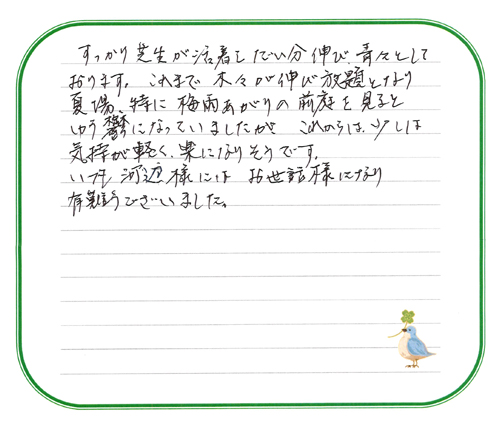 すっかり芝生が活着しだい分伸び、青々として
おります。これまで 木々が伸び放題となり
夏場、特に梅雨あがりの前庭を見ると
ゆう鬱になっていましたが これからは、少しは
気持が軽く、楽になりそうです。
いつも河辺様には お世話様になり
有難うございました。